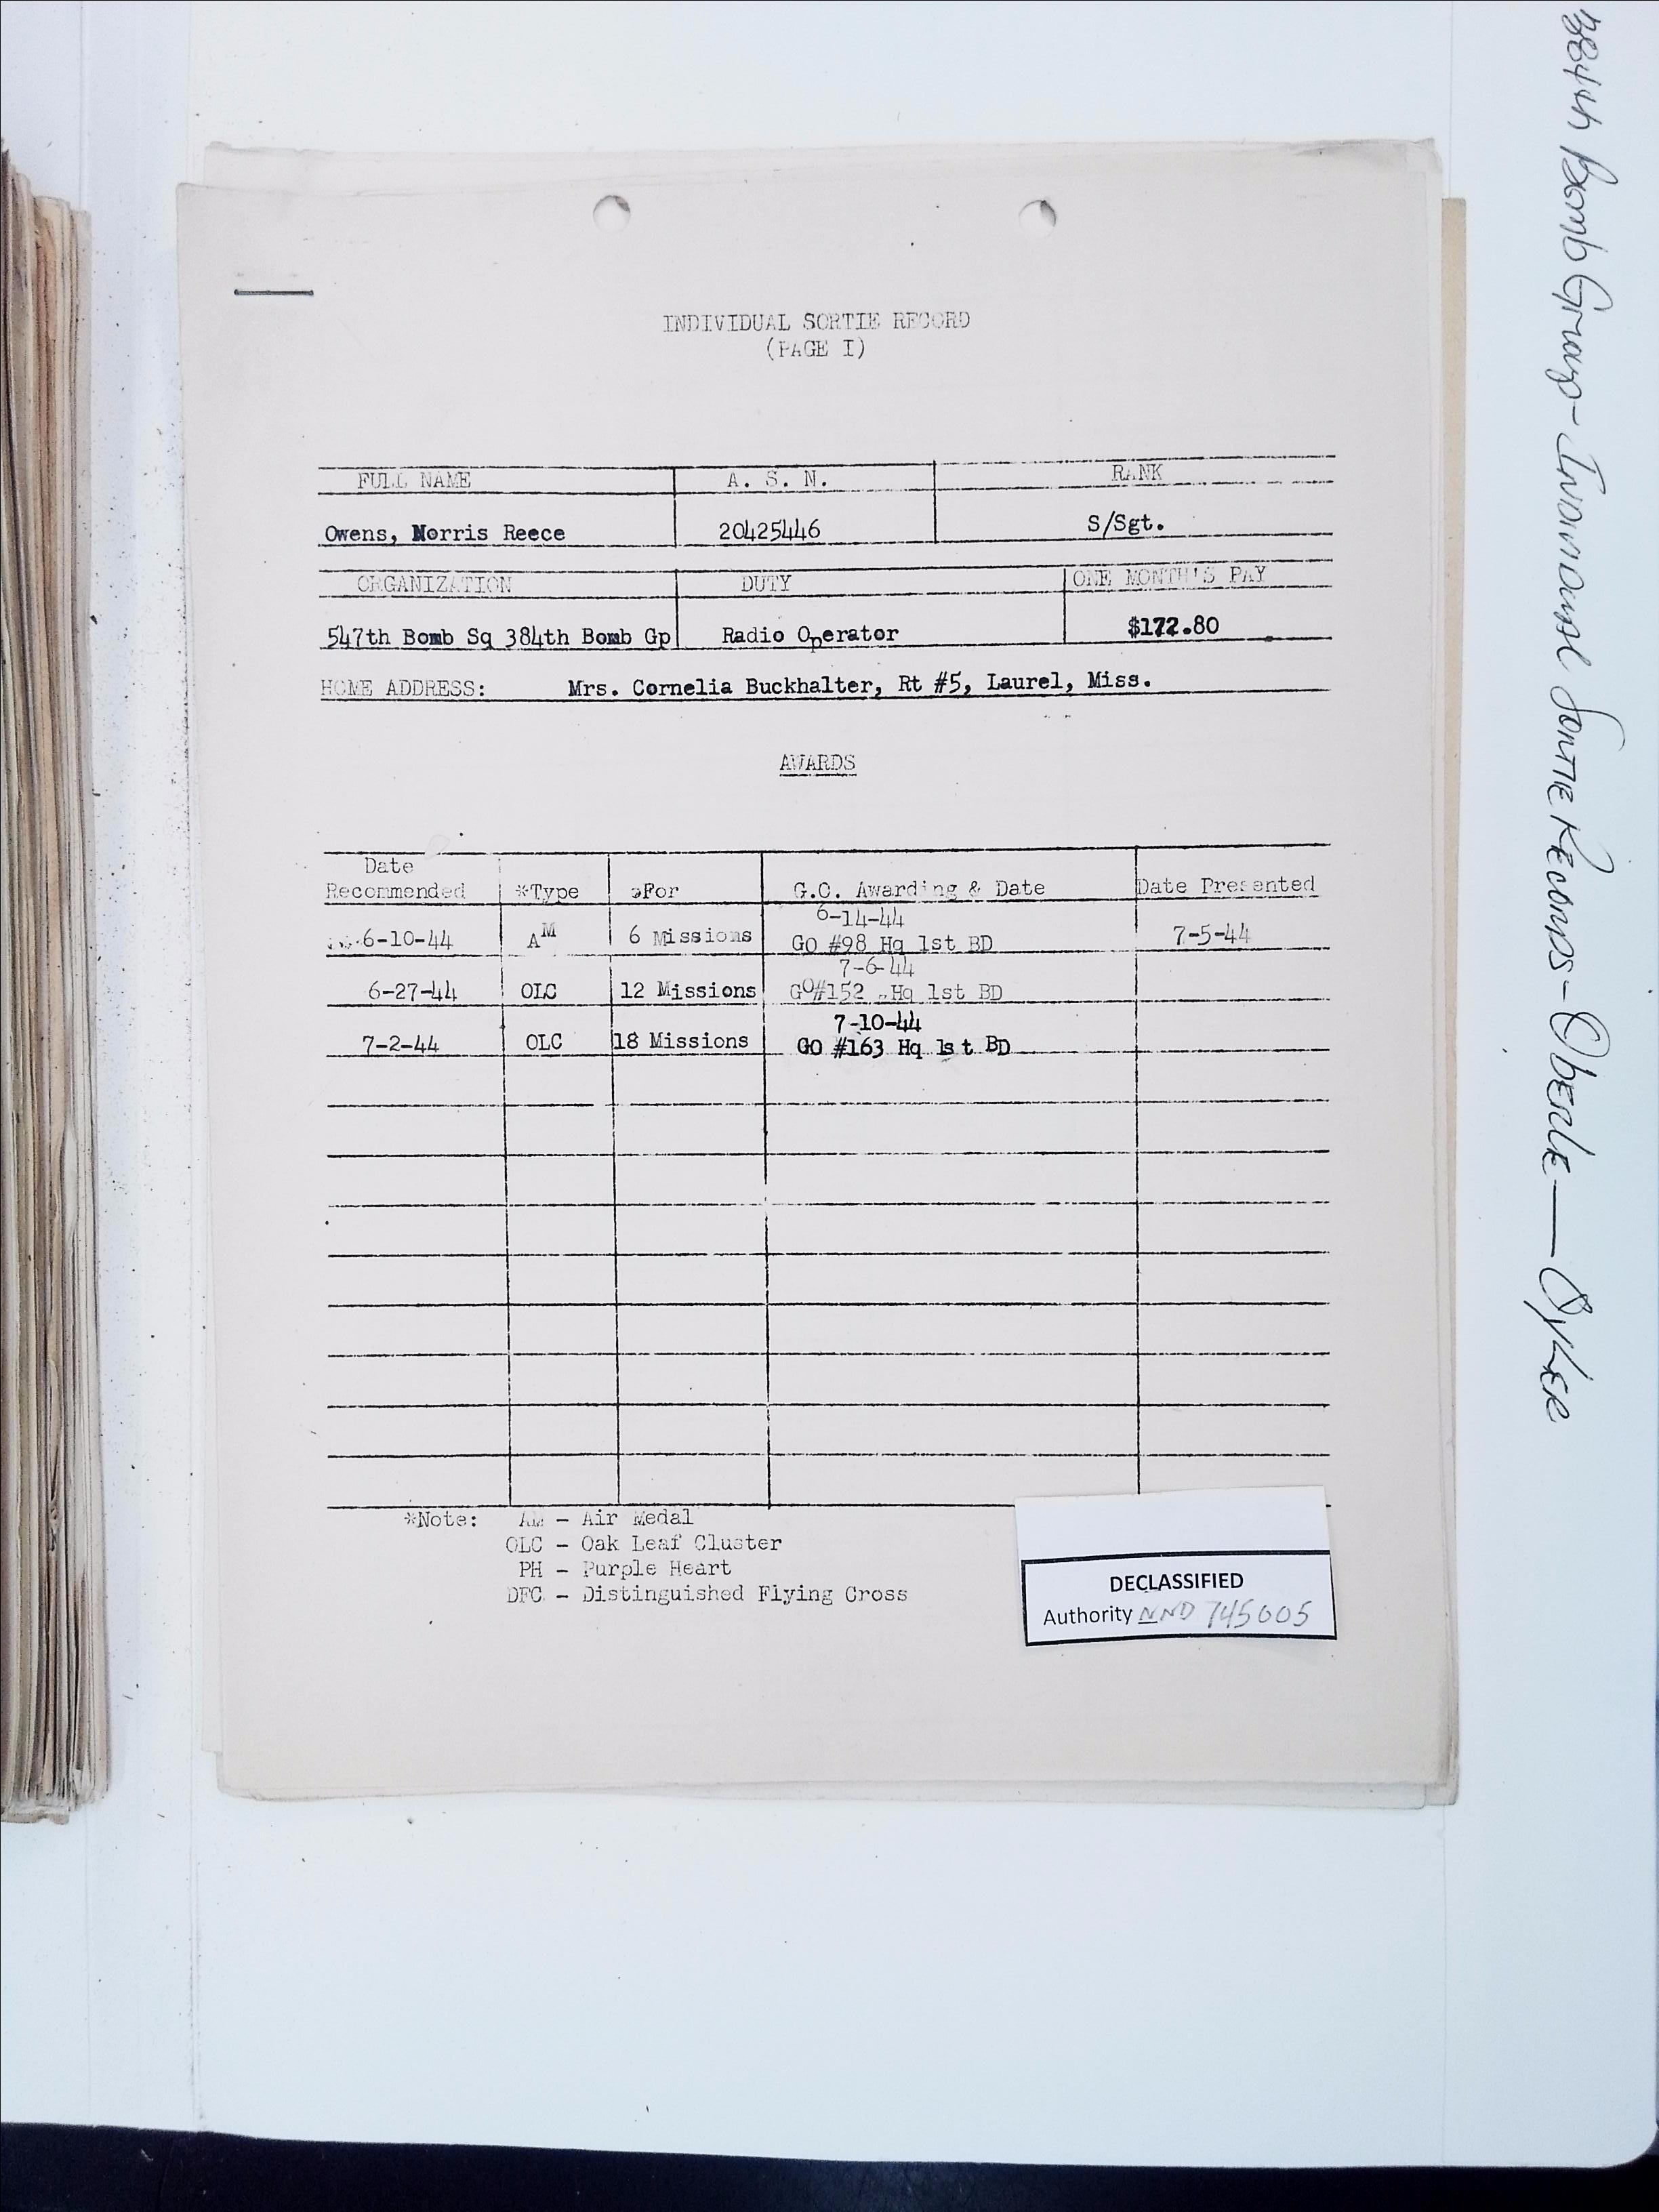 384th Bomb Group - Individual Sortie Records - Oberle — Oyler
INDIVIDUAL SORTIE RECORD
(PAGE I)
FULL NAME A. S. N. RANK
Owens, Morris Reece 20425446 S/Sgt.
ORGANIZATION DUTY ONE MONTH'S PAY
547th Bomb Sq 384th Bomb Gp Radio Operator $172.80
HOME ADDRESS: Mrs. Cornelia Buckhalter, Rt #5, Laurel, Miss.
AWARDS
Date
Recommended *Type For G.O. Awarding & Date Date Presented
6-14-44
6-10-44 AM 6 Missions GO #98 Hq 1st BD 7-5-44
7-6-44
6-27-44 OLC 12 Missions GO#152 Hq 1st BD
7-10-44
7-2-44 OLC 18 Missions GO #163 Hq 1st BD
*Note: AM - Air Medal
OLC - Oak Leaf Cluster
PH - Purple Heart
DFC - Distinguished Flying Cross
DECLASSIFIED
Authority NND 745005